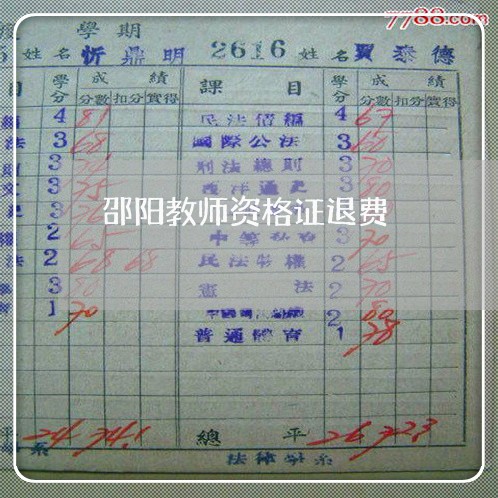 7788.com
學期
姓名 忻鼎明 2616 姓名 賈泰德
目 學分 成績 課目 學分 成績
分數 扣分 實得 分數 扣分 實得
4 81 民法債編 4 67
法 3 68 國際公法 3 60
3 刑法總則 3 70
3 75 西洋通史 3 80
邵阳教师资格证退费
2 65 3 70
法 2 68 68 民法物權 2 65
3 80 憲法 2 70
1 70 2 80
普通體育 1 78
平 24 74.1 總平 26 72.3
系 法律學系